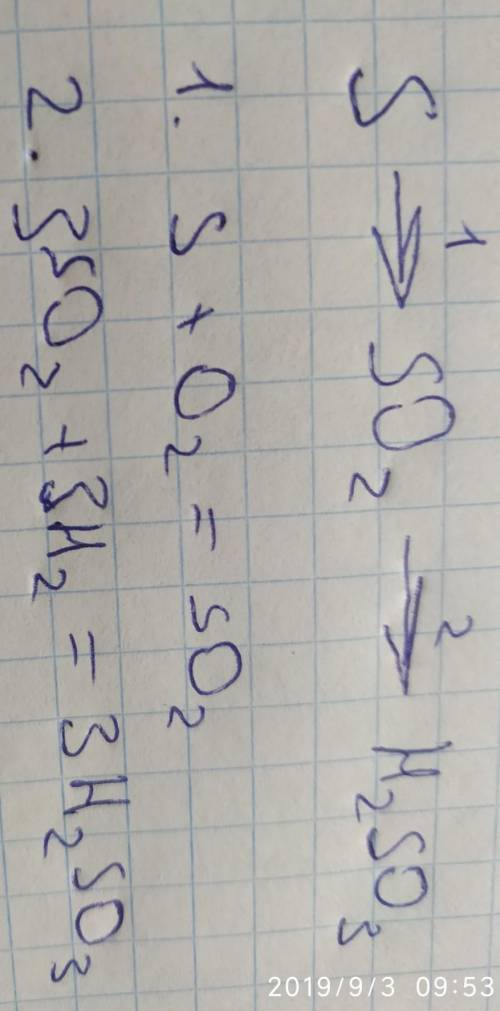 S →¹ SO₂ →² H₂SO₃
1. S + O₂ = SO₂
2. 3SO₂ + 3H₂ = 3H₂SO₃
2019/9/3 09:53